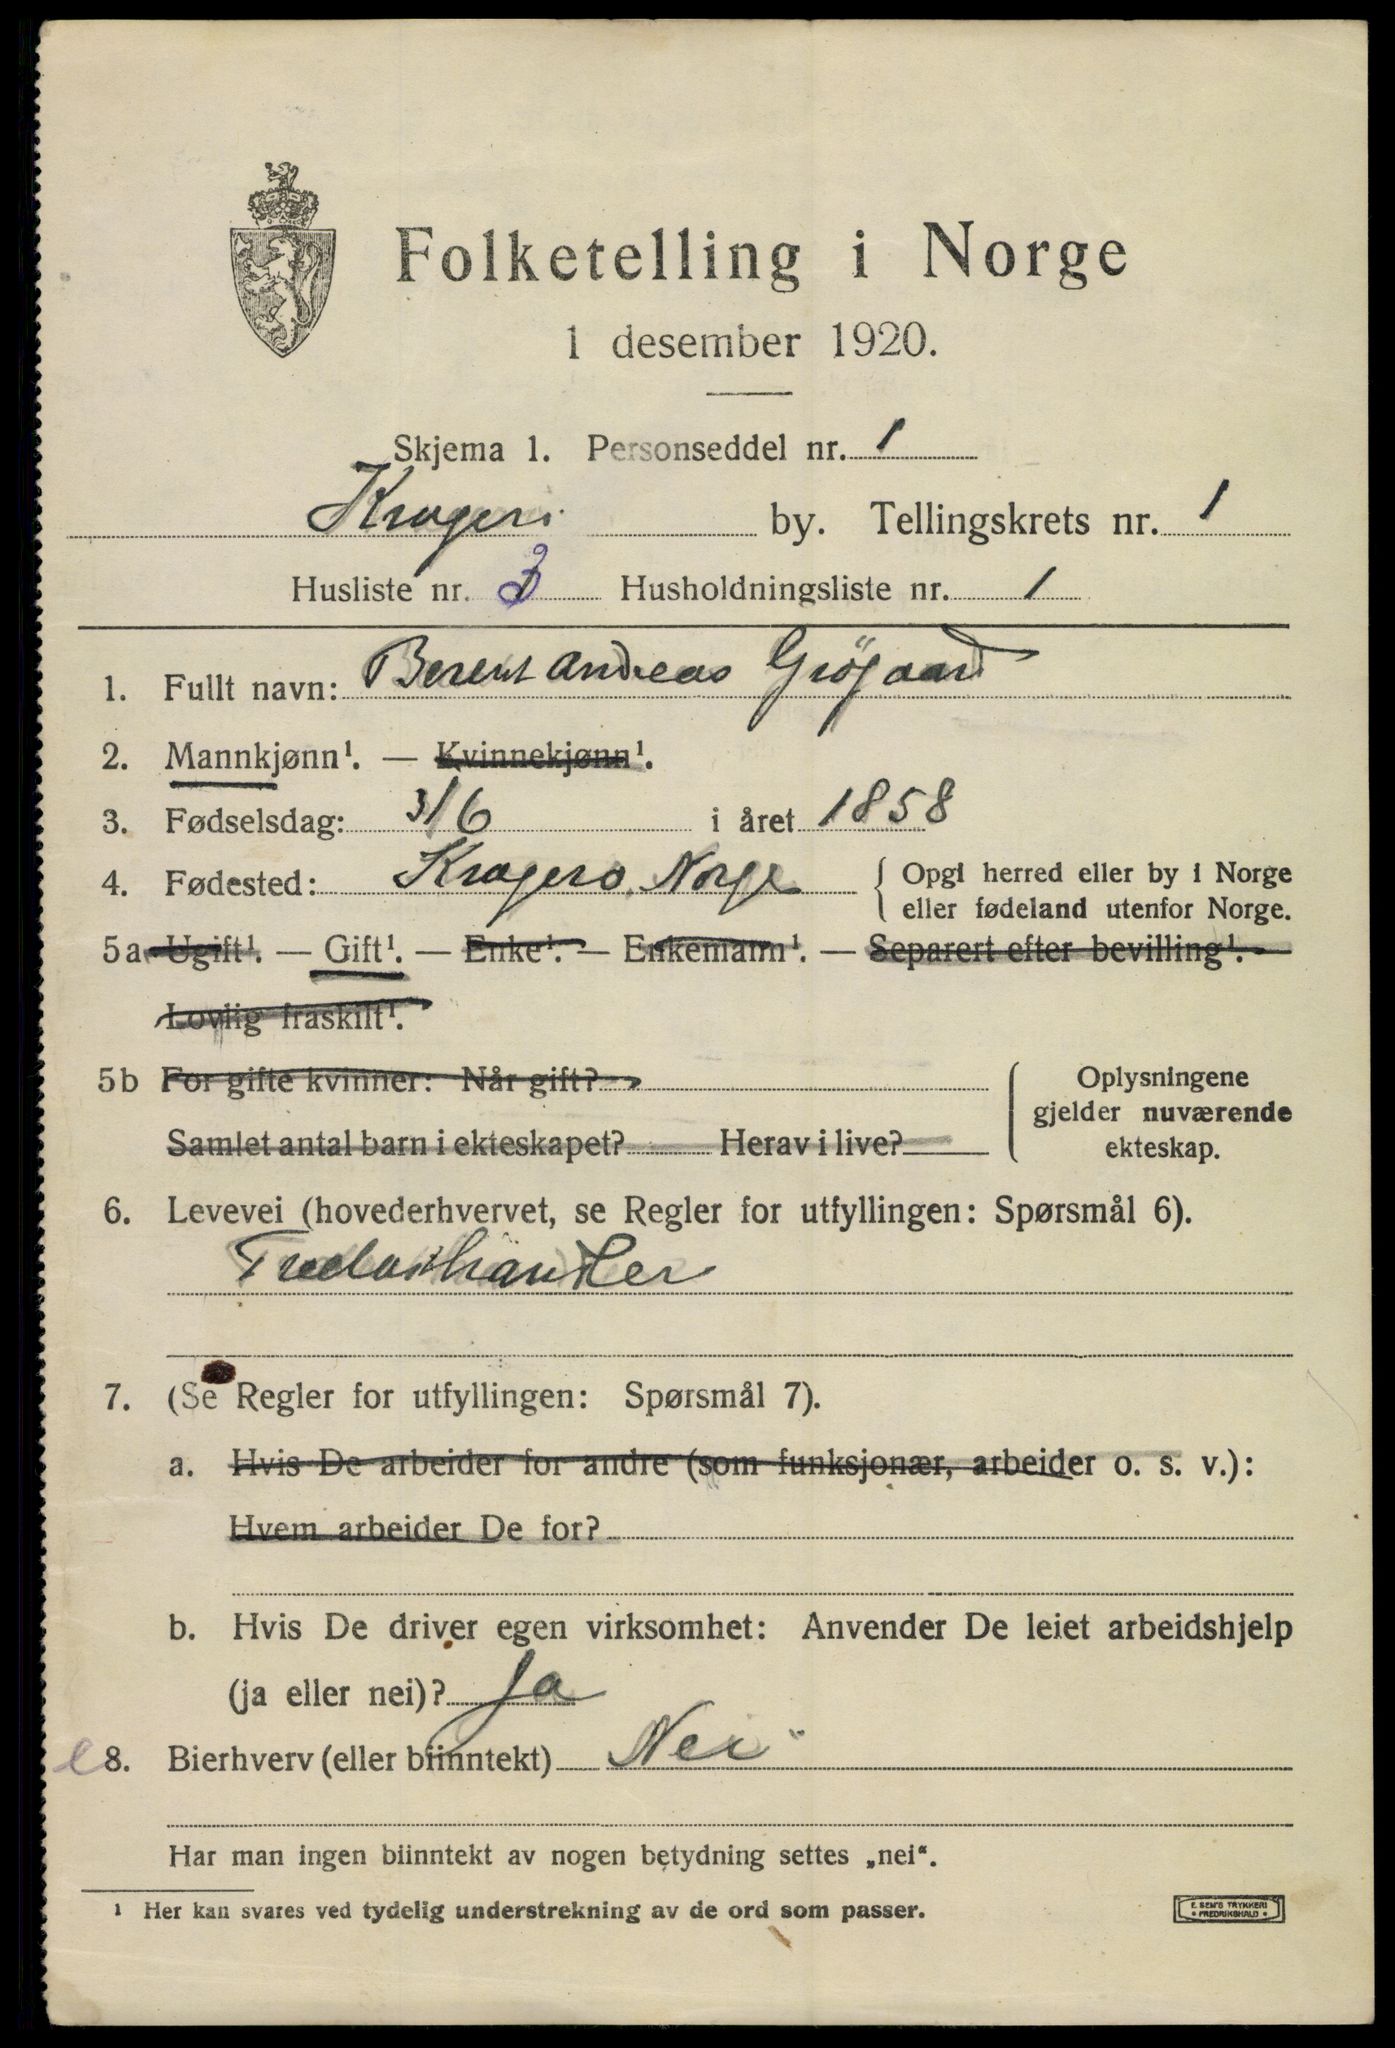 Folketelling i Norge
1 desember 1920.
Skjema 1. Personseddel nr. 1
Kragerø by. Tellingskrets nr. 1
Husliste nr. 3 Husholdningsliste nr. 1
1. Fullt navn: Berent Andreas Grögaard
2. Mannkjønn¹. — Kvinnekjønn¹.
3. Fødselsdag: 3/6 i året 1858
4. Fødested: Kragero, Norge { Opgi herred eller by i Norge
eller fødeland utenfor Norge.
5a Ugift¹. — Gift¹. — Enke¹. — Enkemann¹. — Separert efter bevilling¹. —
Lovlig fraskilt¹.
5b For gifte kvinner: Når gift? { Oplysningene
gjelder nuværende
Samlet antal barn i ekteskapet? Herav i live? ekteskap.
6. Levevei (hovederhvervet, se Regler for utfyllingen: Spørsmål 6).
Trelasthandler
7. (Se Regler for utfyllingen: Spørsmål 7).
a. Hvis De arbeider for andre (som funksjonær, arbeider o. s. v.):
Hvem arbeider De for?
b. Hvis De driver egen virksomhet: Anvender De leiet arbeidshjelp
(ja eller nei)? Ja
8. Bierhverv (eller biinntekt) Nei
Har man ingen biinntekt av nogen betydning settes „nei“.
¹ Her kan svares ved tydelig understrekning av de ord som passer.
E. SEM'S TRYKKERI
• FREDRIKSHALD •